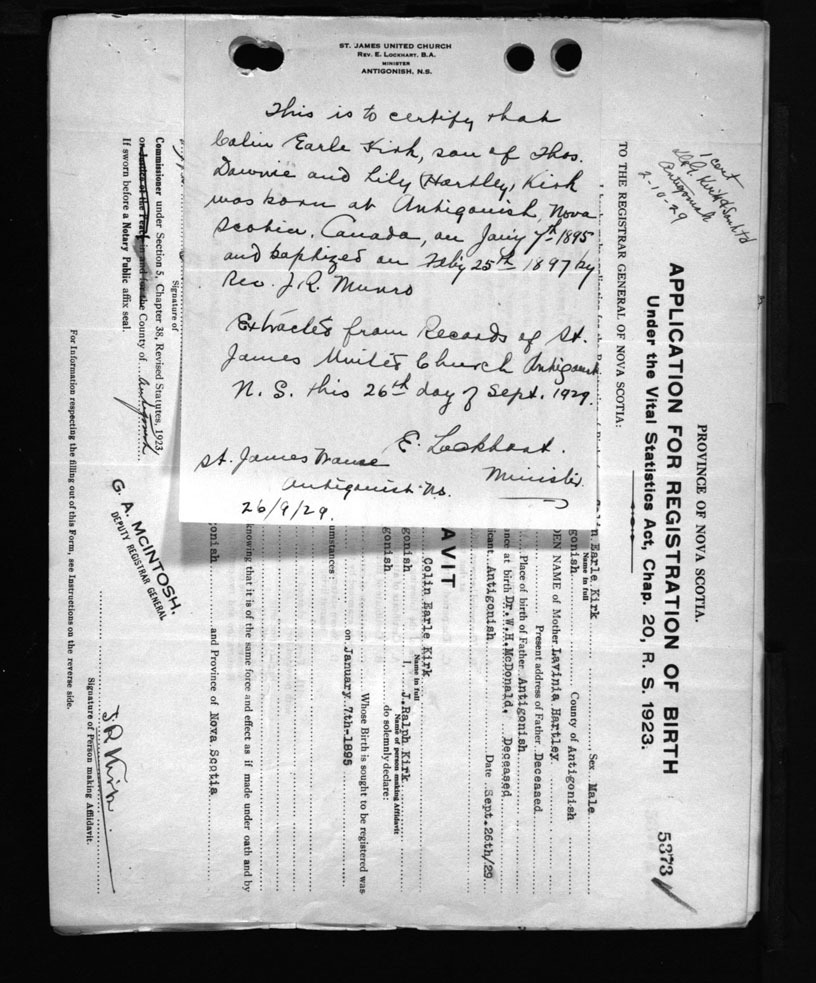 ST. JAMES UNITED CHURCH
REV. E. LOCKHART. B.A.
MINISTER
ANTIGONISH, N.S.
This is to certify that
Colin Earle Kirk, son of Thos.
Downie and Lily (Hartley) Kirk
was born at Antigonish, Nova
Scotia, Canada, on Jany 7th 1895
and baptized on Feby 25th 1897 by
Rev. J. R. Munro
Extracted from Records of St.
James United Church Antigonish
N. S. this 26th day of Sept. 1929.
E. Lockhart.
Minister
St. James Manse
Antigonish N.S.
26/9/29.
1 cert
Kirk &
Antigonish
2-10-29
PROVINCE OF NOVA SCOTIA.
APPLICATION FOR REGISTRATION OF BIRTH
Under the Vital Statistics Act, Chap. 20, R. S. 1923.
5373
TO THE REGISTRAR GENERAL OF NOVA SCOTIA:
Colin Earle Kirk Sex Male
Name in full
gonish County of Antigonish
DEN NAME of Mother Lavinia Hartley
Present address of Father Deceased
Place of birth of Father Antigonish
nce at birth Dr. W. H. McDonald, Deceased
icant Antigonish Date Sept. 26th/29
AVIT
Colin Earle Kirk
Name in full
gonish I, J. Ralph Kirk
Name of person making Affidavit
gonish do solemnly declare:
Whose Birth is sought to be registered was
on January 7th-1895
umstances:
knowing that it is of the same force and effect as if made under oath and by
gonish and Province of Nova Scotia
J R Kirk
Signature of Person making Affidavit.
Signature of
G. A. MCINTOSH,
DEPUTY REGISTRAR GENERAL
Commissioner under Section 5, Chapter 38, Revised Statutes, 1923,
or Justice of the Peace in and for the County of Antigonish
If sworn before a Notary Public affix seal.
For Information respecting the filling out of this Form, see Instructions on the reverse side.